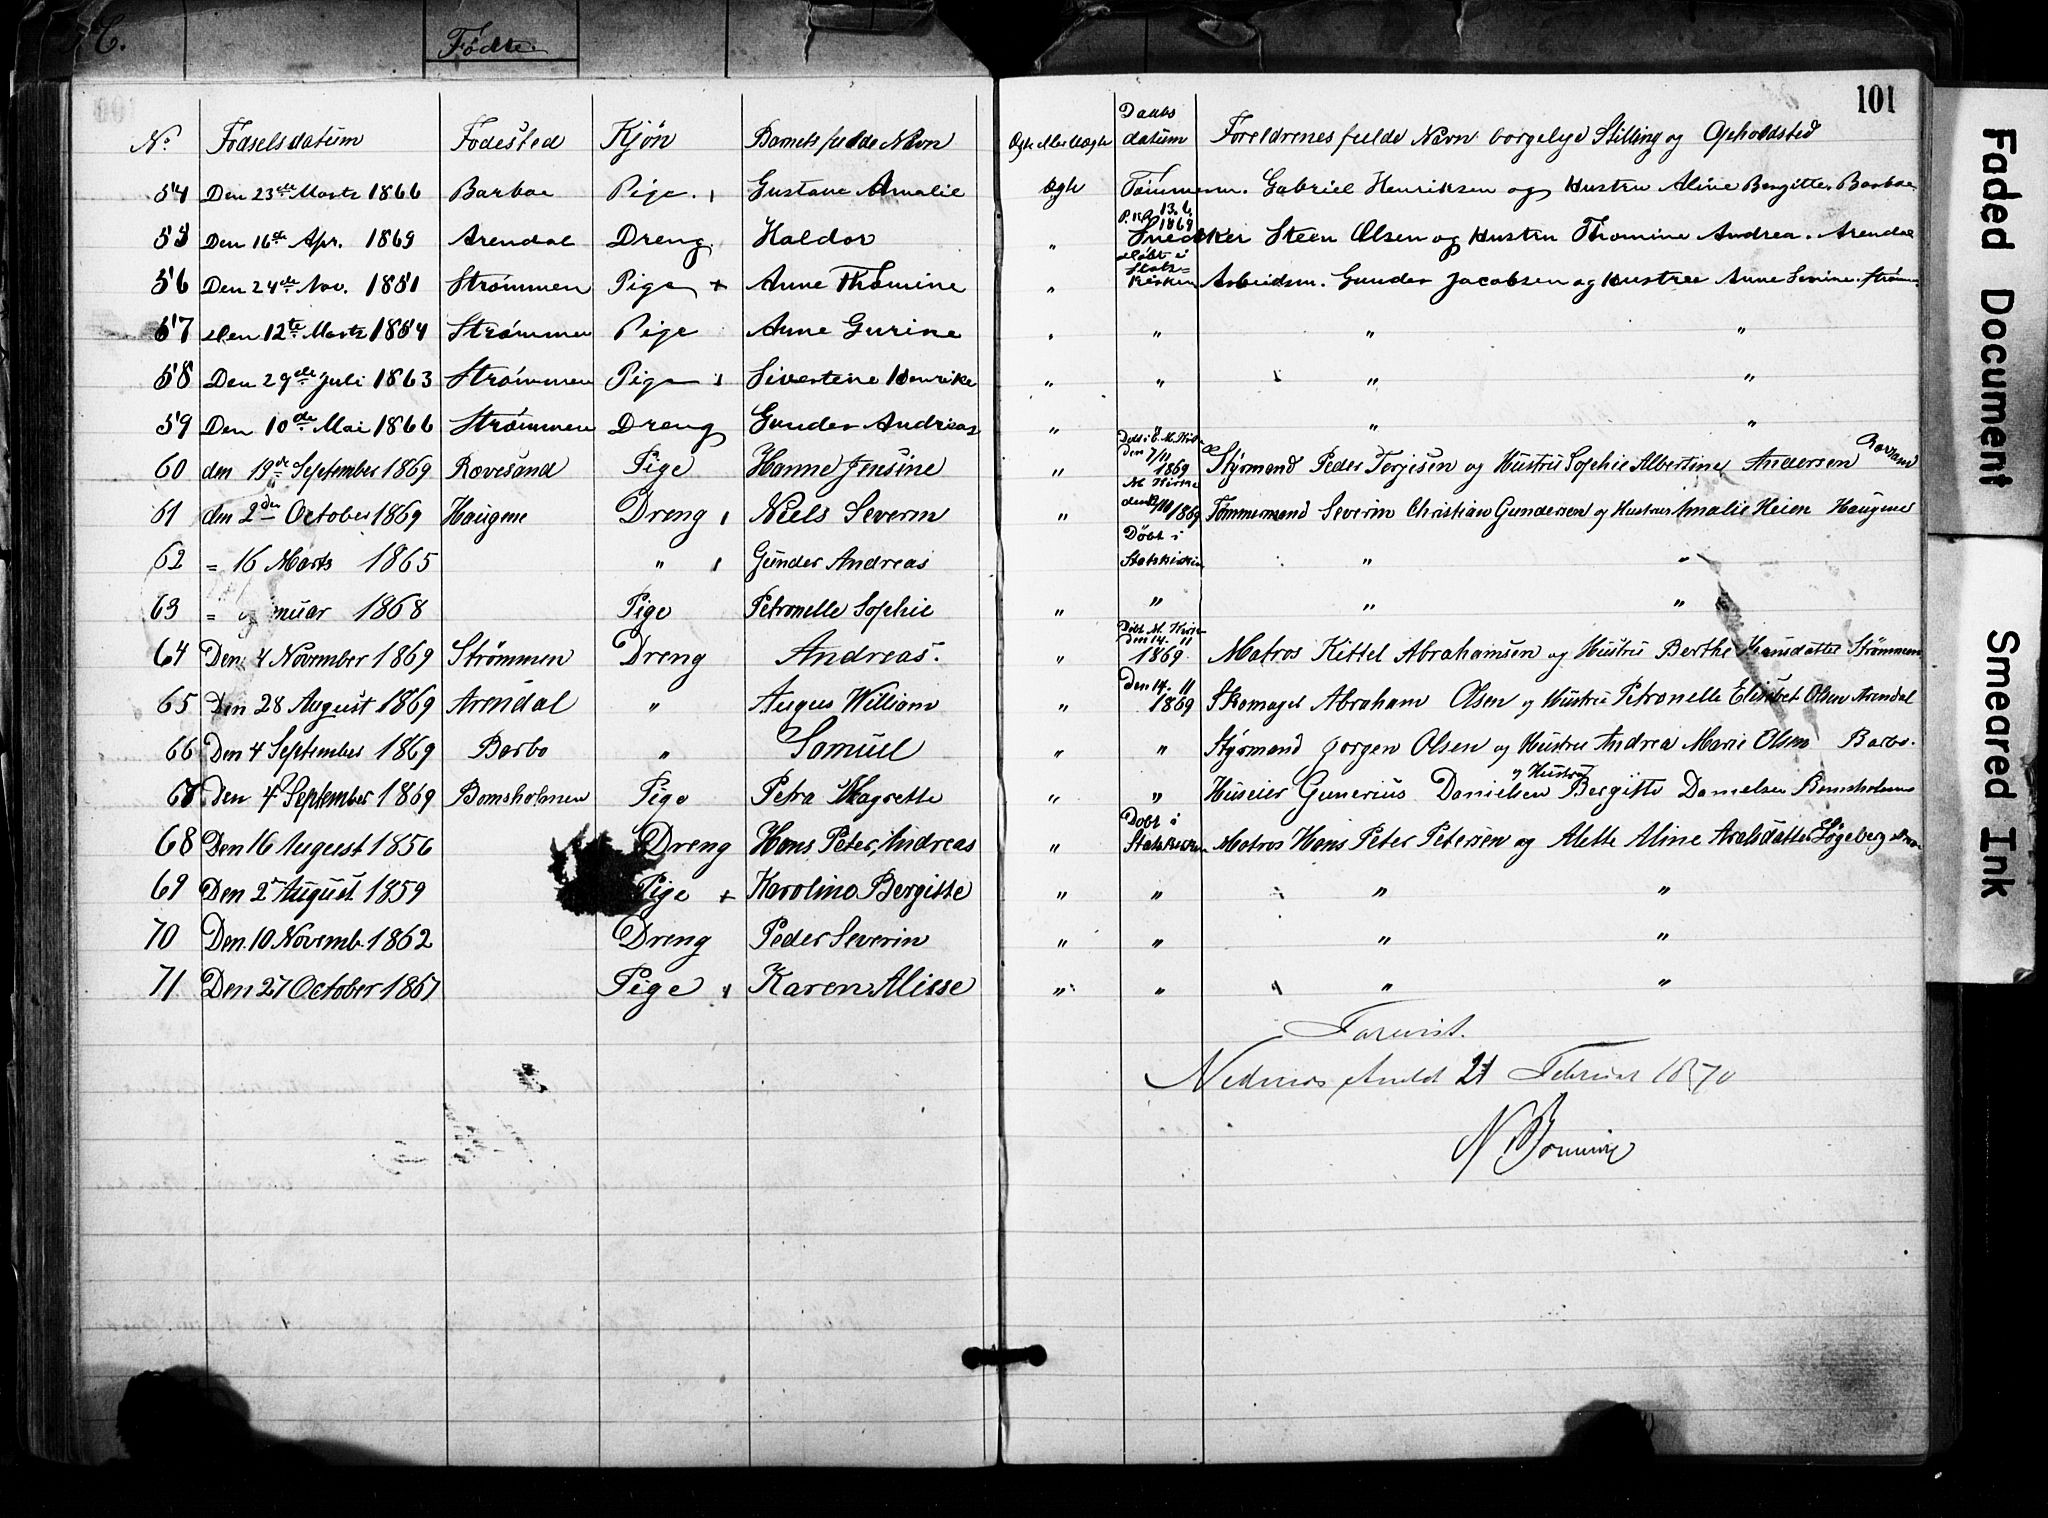 C.
Fødte.
101
No Fødselsdatum Fødested Kjøn Barnets fulde Navn Ægte eller Uægte Daabs datum Foreldrenes fulde Navn borgelige Stilling og Opholdsted
54 Den 23de Marts 1866 Barboe Pige Gustave Amalie ægte Tømmerm. Gabriel Henriksen og Hustru Aline Bergitte. Barboe
55 Den 16de Apr. 1869 Arendal Dreng Haldor " 13.6. 1869 Snedker Steen Olsen og Hustru Thomine Andrea. Arendal
56 Den 24de Nov. 1851 Strømmen Pige + Anne Thomine " døbt i Statskirken Arbeidsm. Gunder Jacobsen og Hustrue Anne Serine. Strømm
57 den 12te Marts 1854 Strømmen Pige Anne Gurine " " " "
58 Den 29de Juli 1863 Strømmen Pige Sivertine Henrike " " " "
59 Den 10de Mai 1866 Strømmen Dreng Gunder Andreas " " "
60 den 19de September 1869 Rovesand Pige Hanne Jensine " Døbt i E. M. Kirke den 7/11 1869 Styrmand Peder Terjesen og Hustru Sophie Albertine Andersen
61 den 2den October 1869 Haugene Dreng Niels Severin " M Kirke 1869 Tømmermand Severin Christian Gundersen og Hustrue Amalie Heien Haugene
62 = 16 Marts 1865 " Gunder Andreas Døbt i Statskirken " "
63 = nuar 1868 Pige Petronelle Sophie " " " "
64 Den 4 November 1869 Strømmen Dreng Andreas. " Døbt M. Kirke Den 14. 11 1869 Matros Kittel Abrahamsen og Hustru Berthe Hansdatter Strømmen
65 Den 28 August 1869 Arendal " August William " Den 14. 11 1869 Skomager Abraham Olsen og Hustru Petronelle Elisabet Olsen Arendal
66 Den 4 September 1869 Barbo " Samuel " " Styrmand Jørgen Olsen og Hustru Andrea Marie Olsen Barbo.
67 Den 4 September 1869 Bomsholmen Pige Petra Magrette " " Huseier Gunerius Danielsen og Hustru Bergitte Danielsen Bomsholmen
68 Den 16 August 1856 Dreng Hans Peter Andreas " Døbt i Statskirken Matros Hans Peter Petersen og Mette Aline Aralsdatter Løgeberg
69 Den 2 August 1859 Pige + Karoline Bergitte " " " "
70 Den 10 Novemb. 1862 Dreng Peder Severin " " " "
71 Den 27 October 1867 Pige Karen Alisse " " " "
Forevist.
Nedenes Amt d 21 Februar 1870
Faded Document
Smeared Ink